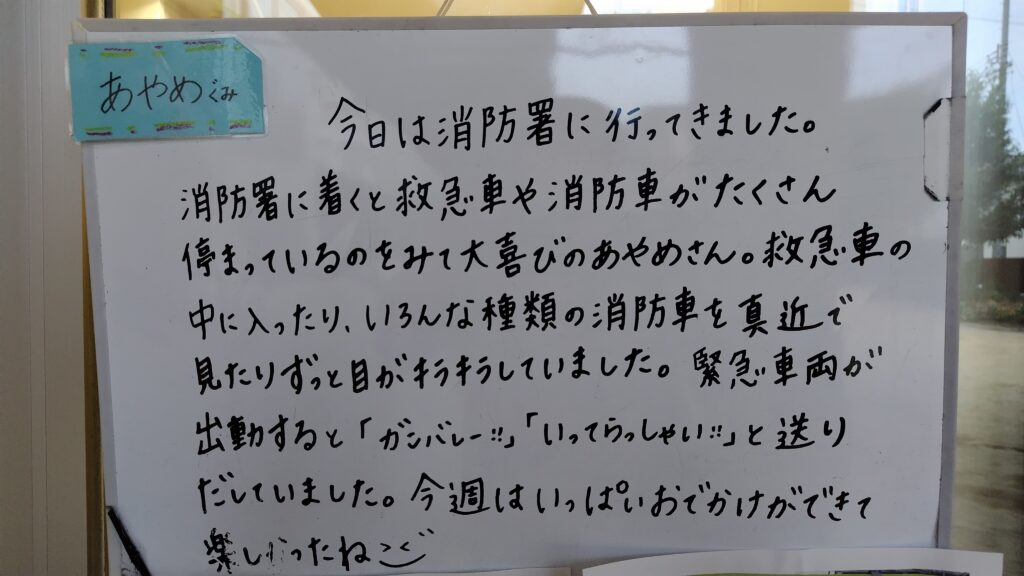 あやめぐみ
今日は消防署に行ってきました。
消防署に着くと救急車や消防車がたくさん
停まっているのをみて大喜びのあやめさん。救急車の
中に入ったり、いろんな種類の消防車を真近で
見たりずっと目がキラキラしていました。緊急車両が
出動すると「ガンバレー!!」「いってらっしゃい!!」と送り
だしていました。今週はいっぱいおでかけができて
楽しかったね